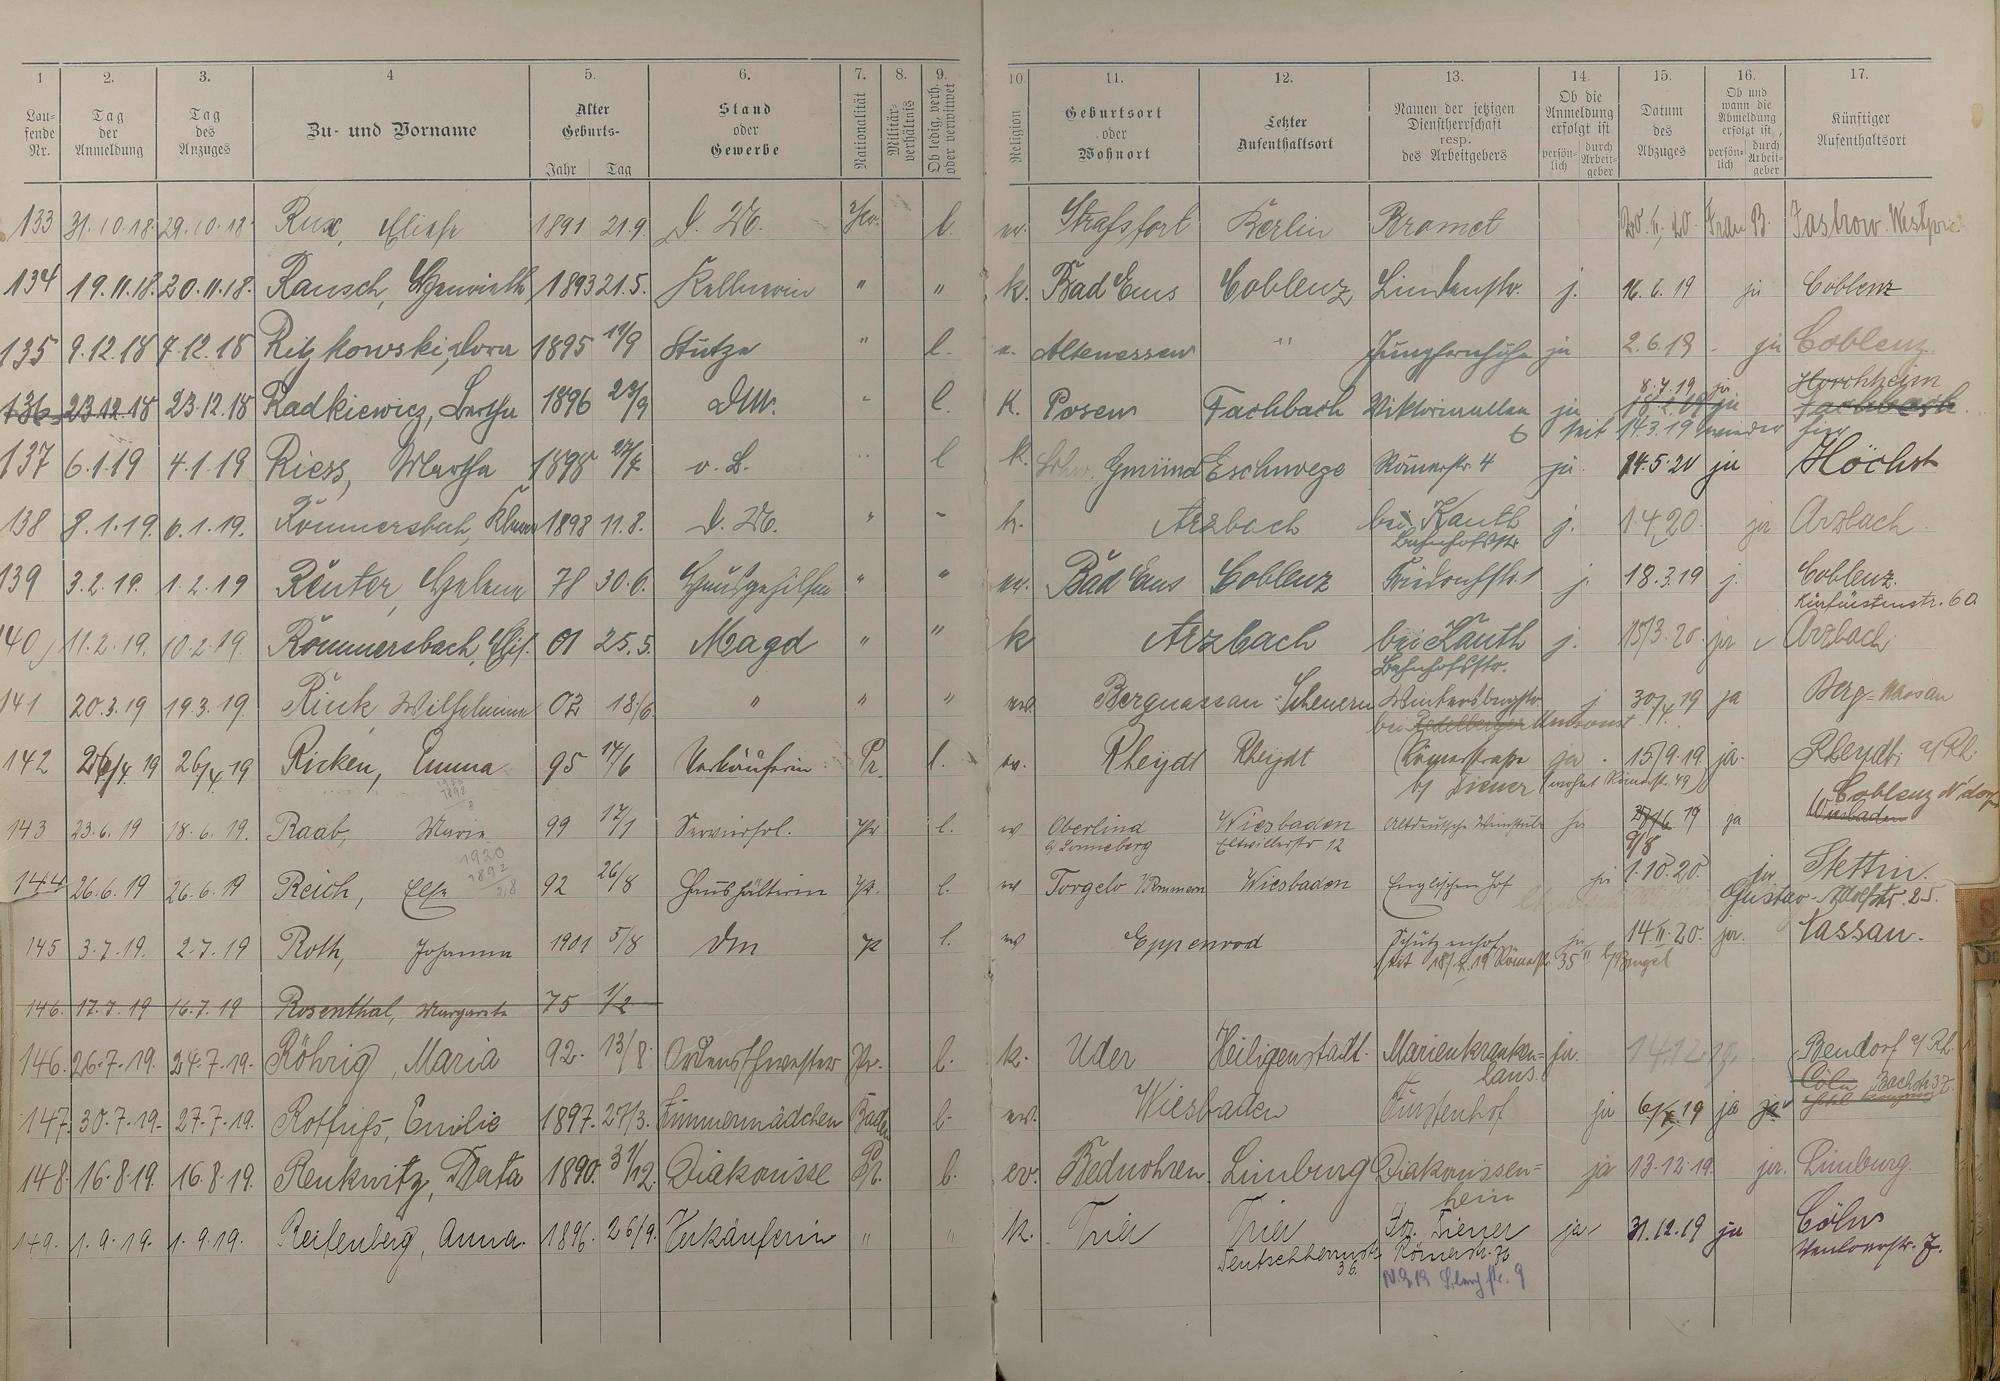 1 2. 3. 4 5. 6. 7. 8. 9. 10 11. 12. 13. 14. 15. 16. 17.
Lau-
fende
Nr.
Tag
der
Anmeldung
Tag
des
Anzuges
Zu- und Vorname
Alter
Geburts-
Jahr Tag
Stand
oder
Gewerbe
Nationalität
Militär-
verhältnis
Ob ledig, verh.
oder verwitwet
Religion
Geburtsort
oder
Wohnort
Letzter
Aufenthaltsort
Namen der jetzigen
Dienstherrschaft
resp.
des Arbeitgebers
Ob die
Anmeldung
erfolgt ist
persön-
lich
durch
Arbeit-
geber
Datum
des
Abzuges
Ob und
wann die
Abmeldung
erfolgt ist,
persön-
lich
durch
Arbeit-
geber
Künftiger
Aufenthaltsort
133 31.10.18. 29.10.18. Rux, Eliese 1891 21.9. D. M. l. ev. Berlin Bramet Frau B. Jastrow
134 19.11.18. 20.11.18. Rausch, 1893 21.5. Kellnerin " " k. Bad Ems Coblenz Lindenstr. j. 16.6.19 ja Coblenz
135 9.12.18 7.12.18 Ritzkowski, Dora 1895 19/9 Stütze " l. e. Altenessen " Jungfernhöhe ja 2.6.19 - ja Coblenz
Horchheim
8.7.19 ja
136 23.12.18 23.12.18 Radkiewicz, Bertha 1896 DM. " l. K. Posen Fachbach Viktoriaallee ja ja Fachbach
6 seit 14.3.19 wieder hier
137 6.1.19 4.1.19 Riess, Martha 1898 o. B. " l k. Gmünd Eschwege Römerstr. 4 ja. 14.5.20 ja Höchst
138 8.1.19. 6.1.19. Römmersbach, 1898 11.8. D. M. " - k. Arzbach bei Kauth j. 1.4.20. ja Arzbach.
Bahnhofstr.
139 3.2.19. 1.2.19 Reuter, Helene 78 30.6. Hausgehilfin " " ev. Bad Ems Coblenz Friedrichstr. 1 j. 18.3.19 j. Coblenz.
Kurfürstenstr. 60
140 11.2.19. 10.2.19. Römmersbach, Elis. 01 25.5. Magd " " k Arzbach bei Kauth j. 15/3.20. ja Arzbach
Bahnhofstr.
141 20.3.19 19.3.19. Rink Wilhelmine 02 18/6. " " " ev. Bergnassau-Scheuern Wintersbergstr. j 30/4.19 ja Berg-Nassau
bei
142 26/4 19 26/4 19 Ricken, Emma 95 17/6 Verkäuferin Pr. l. ev. Rheydt Rheydt Römerstraße ja . 15/9.19 ja. Rheydt a/Rh.
b/ Diener (wohnt Römerstr. 49)
Coblenz N'dorf
143 23.6.19 18.6.19. Raab, Marie 99 17/1 Servierfrl. Pr l. ev Oberlind Wiesbaden Altdeutsche Weinstube ja 19 ja Wiesbaden
b/ Sonneberg Eltvillerstr 12 9/8
1920
1892
28
144 26.6.19 26.6.19 Reich, Else 92 26/8 Haushälterin Pr. l. ev Torgelo Pommern Wiesbaden Englischer Hof ja 1.10.20. ja Stettin.
Gustav-Adolfstr. 25.
145 3.7.19. 2.7.19 Roth, Johanna 1901 5/8 DM Pr l. ev Eppenrod Schützenhof ja 14.11.20. ja. Nassau.
seit Römerstr. 35
146. 17.7.19 16.7.19 Rosenthal, Margarete 75 1/2
146. 26.7.19. 24.7.19. Röhrig, Maria 92. 13/8. Ordensschwester Pr. l. k. Uder Heiligenstadt. Marienkranken- ja. 14.12.19. Bendorf a/Rh.
haus.
Cöln Bachstr. 37
147. 30.7.19. 27.7.19. Rotfuß, Emilie 1897. 27/3. Zimmermädchen Baden l. ev. Wiesbaden Fürstenhof ja 19 ja ja
148. 16.8.19. 16.8.19. Renkwitz, Marta 1890. 31/12. Diakonisse Pr. l. ev. Limburg Diakonissen- ja 13.12.19. ja. Limburg.
heim
149. 1.9.19. 1.9.19. Reifenberg, Anna. 1896. 26/9. Verkäuferin " " k. Trier Trier Diener ja 31.12.19 ja Cöln
Deutschherrnstr. 36. Römerstr. Venloerstr. 7.